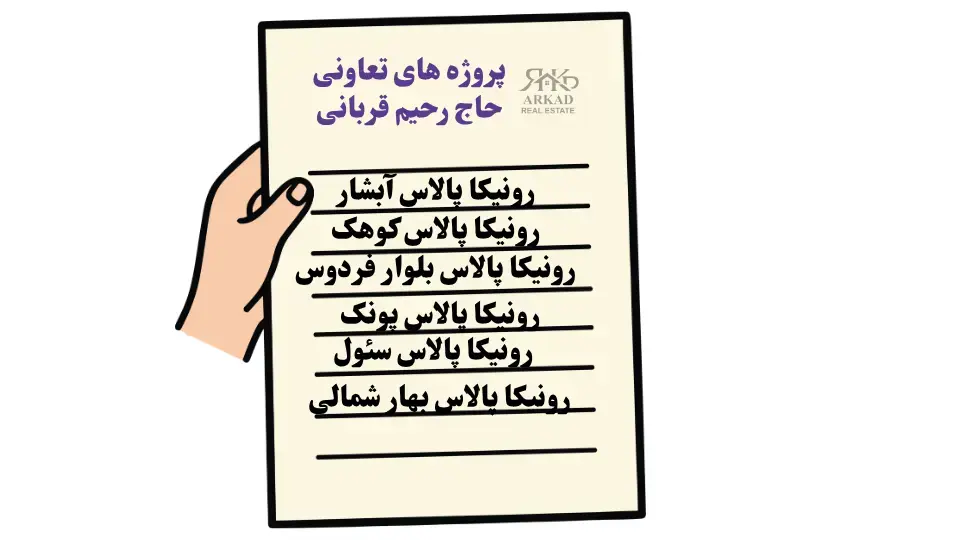 پروژه های تعاونی
حاج رحیم قربانی
ARKAD
REAL ESTATE
رونیکا پالاس آبشار
رونیکا پالاس کوهک
رونیکا پالاس بلوار فردوس
رونیکا پالاس پونک
رونیکا پالاس سئول
رونیکا پالاس بهار شمالی